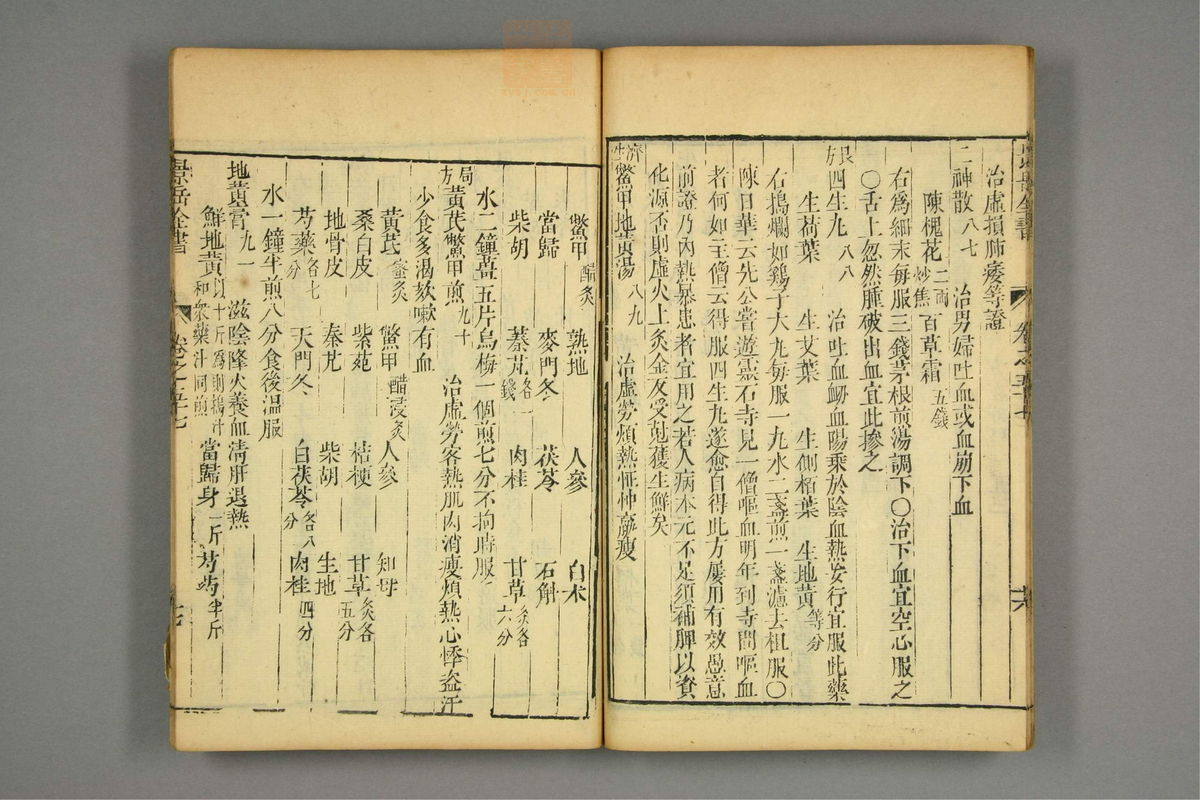 治虛損肺痿等證
二神散八七　治男婦吐血或血崩下血
陳槐花二兩炒焦　百草霜五錢
右爲細末每服三錢茅根煎湯調下〇治下血宜空心服之
〇舌上忽然腫破出血宜此摻之
良方四生丸八八　治吐血衂血陽乘於陰血熱妄行宜服此藥
生荷葉　生艾葉　生側栢葉　生地黃等分
右搗爛如鷄子大丸每服一丸水二盞煎一盞濾去柤服〇
陳日華云先公嘗遊靈石寺見一僧嘔血明年到寺問嘔血
者何如主僧云得服四生丸遂愈自得此方屢用有效愚意
前證乃內熱暴患者宜用之若人病本元不足須補脾以資
化源否則虛火上炎金反受尅獲生鮮矣
濟生鱉甲地黃湯八九　治虛勞煩熱怔忡羸瘦
景岳全書
卷之五十七
鱉甲醋炙　熟地　人參　白朮
當歸　麥門冬　茯苓　石斛
柴胡　秦艽各一錢　肉桂　甘草炙各六分
水二鐘薑五片烏梅一個煎七分不拘時服
局方黃芪鱉甲煎九十　治虛勞客熱肌肉消瘦煩熱心悸盜汗
少食多渴欬嗽有血
黃芪蜜炙　鱉甲醋浸炙　人參　知母
桑白皮　紫菀　桔梗　甘草炙各五分
地骨皮　秦艽　柴胡　生地
芍藥各七分　天門冬　白茯苓各八分　肉桂四分
水一鐘半煎八分食後溫服
地黃膏九一　滋陰降火養血淸肝退熱
鮮地黃以十斤爲則搗汁和衆藥汁同煎　當歸身一斤　芍藥半斤
景岳全書
卷之五十七